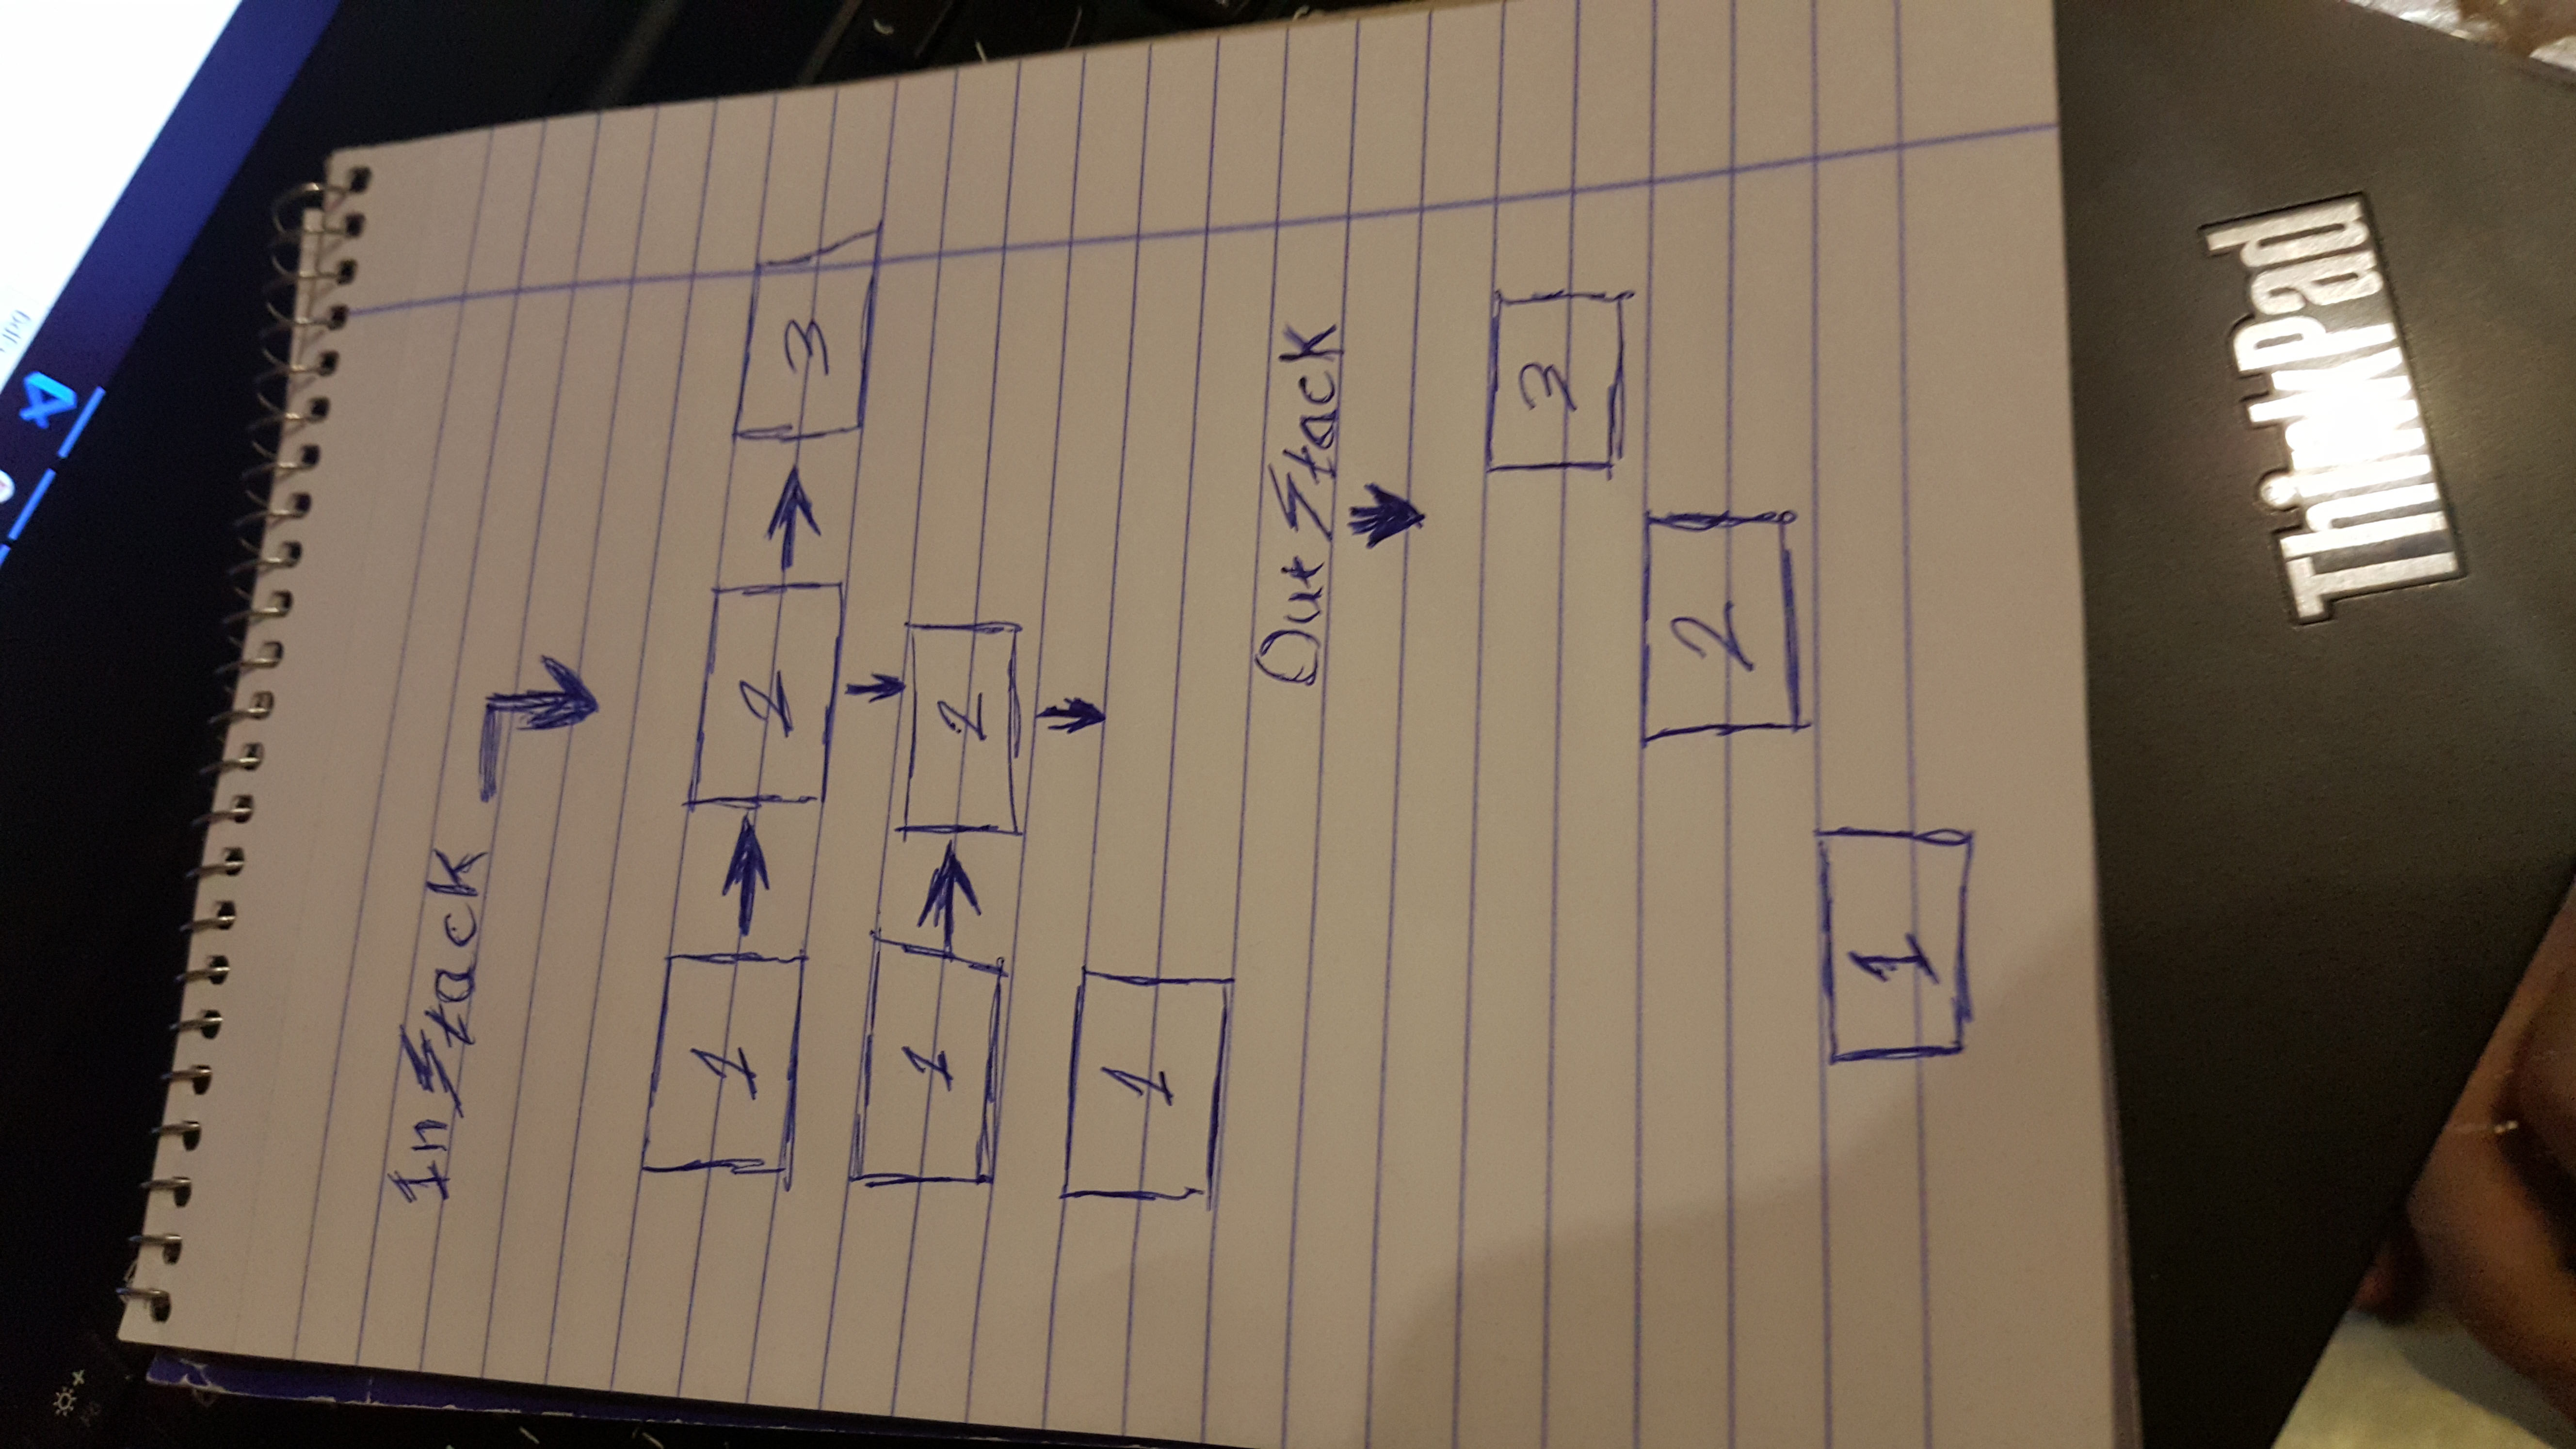 jpg
In Stack
1 2 3
1 2
1
Out Stack
3
2
1
ThinkPad